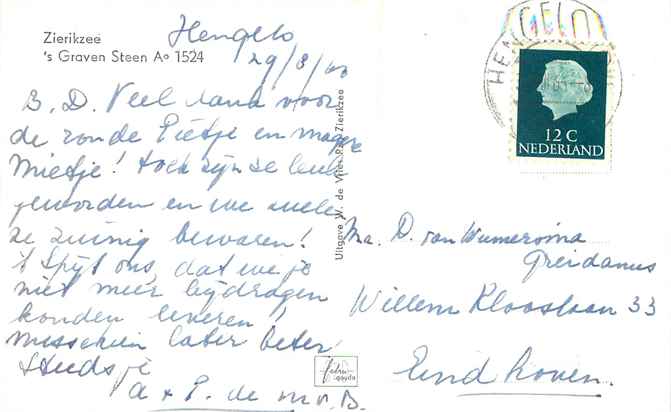 Zierikzee
's Graven Steen Ao 1524
Hengelo
29/8/60
B. D. Veel dank voor
de ronde Pietje en magere
Mietje! toch zijn ze leuk
geworden en we zullen
ze zuinig bewaren!
't Spijt ons, dat we je
niet meer bijdragen
konden leveren!
misschien later beter
Steeds je
A + P. de M. v. B.
Uitgave W. de Vries Pzn Zierikzee
HENGELO
12 C
NEDERLAND
Ma. D. van
Greidanus
Willem Klooslaan 33
Eindhoven.